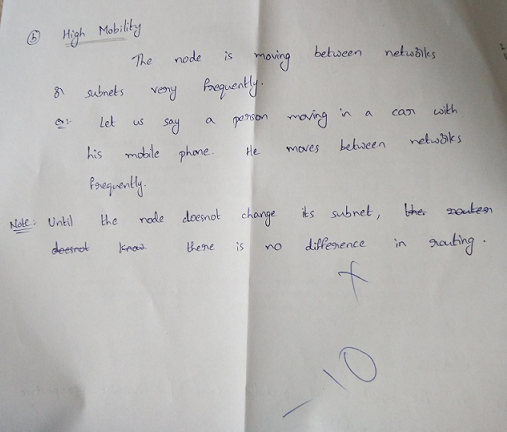 (b) High Mobility
The node is moving between networks
or subnets very frequently.
ex:- Let us say a person moving in a car with
his mobile phone. He moves between networks
frequently.
Note: Until the node doesnot change its subnet, the router
doesnot know there is no difference in routing.
- 10